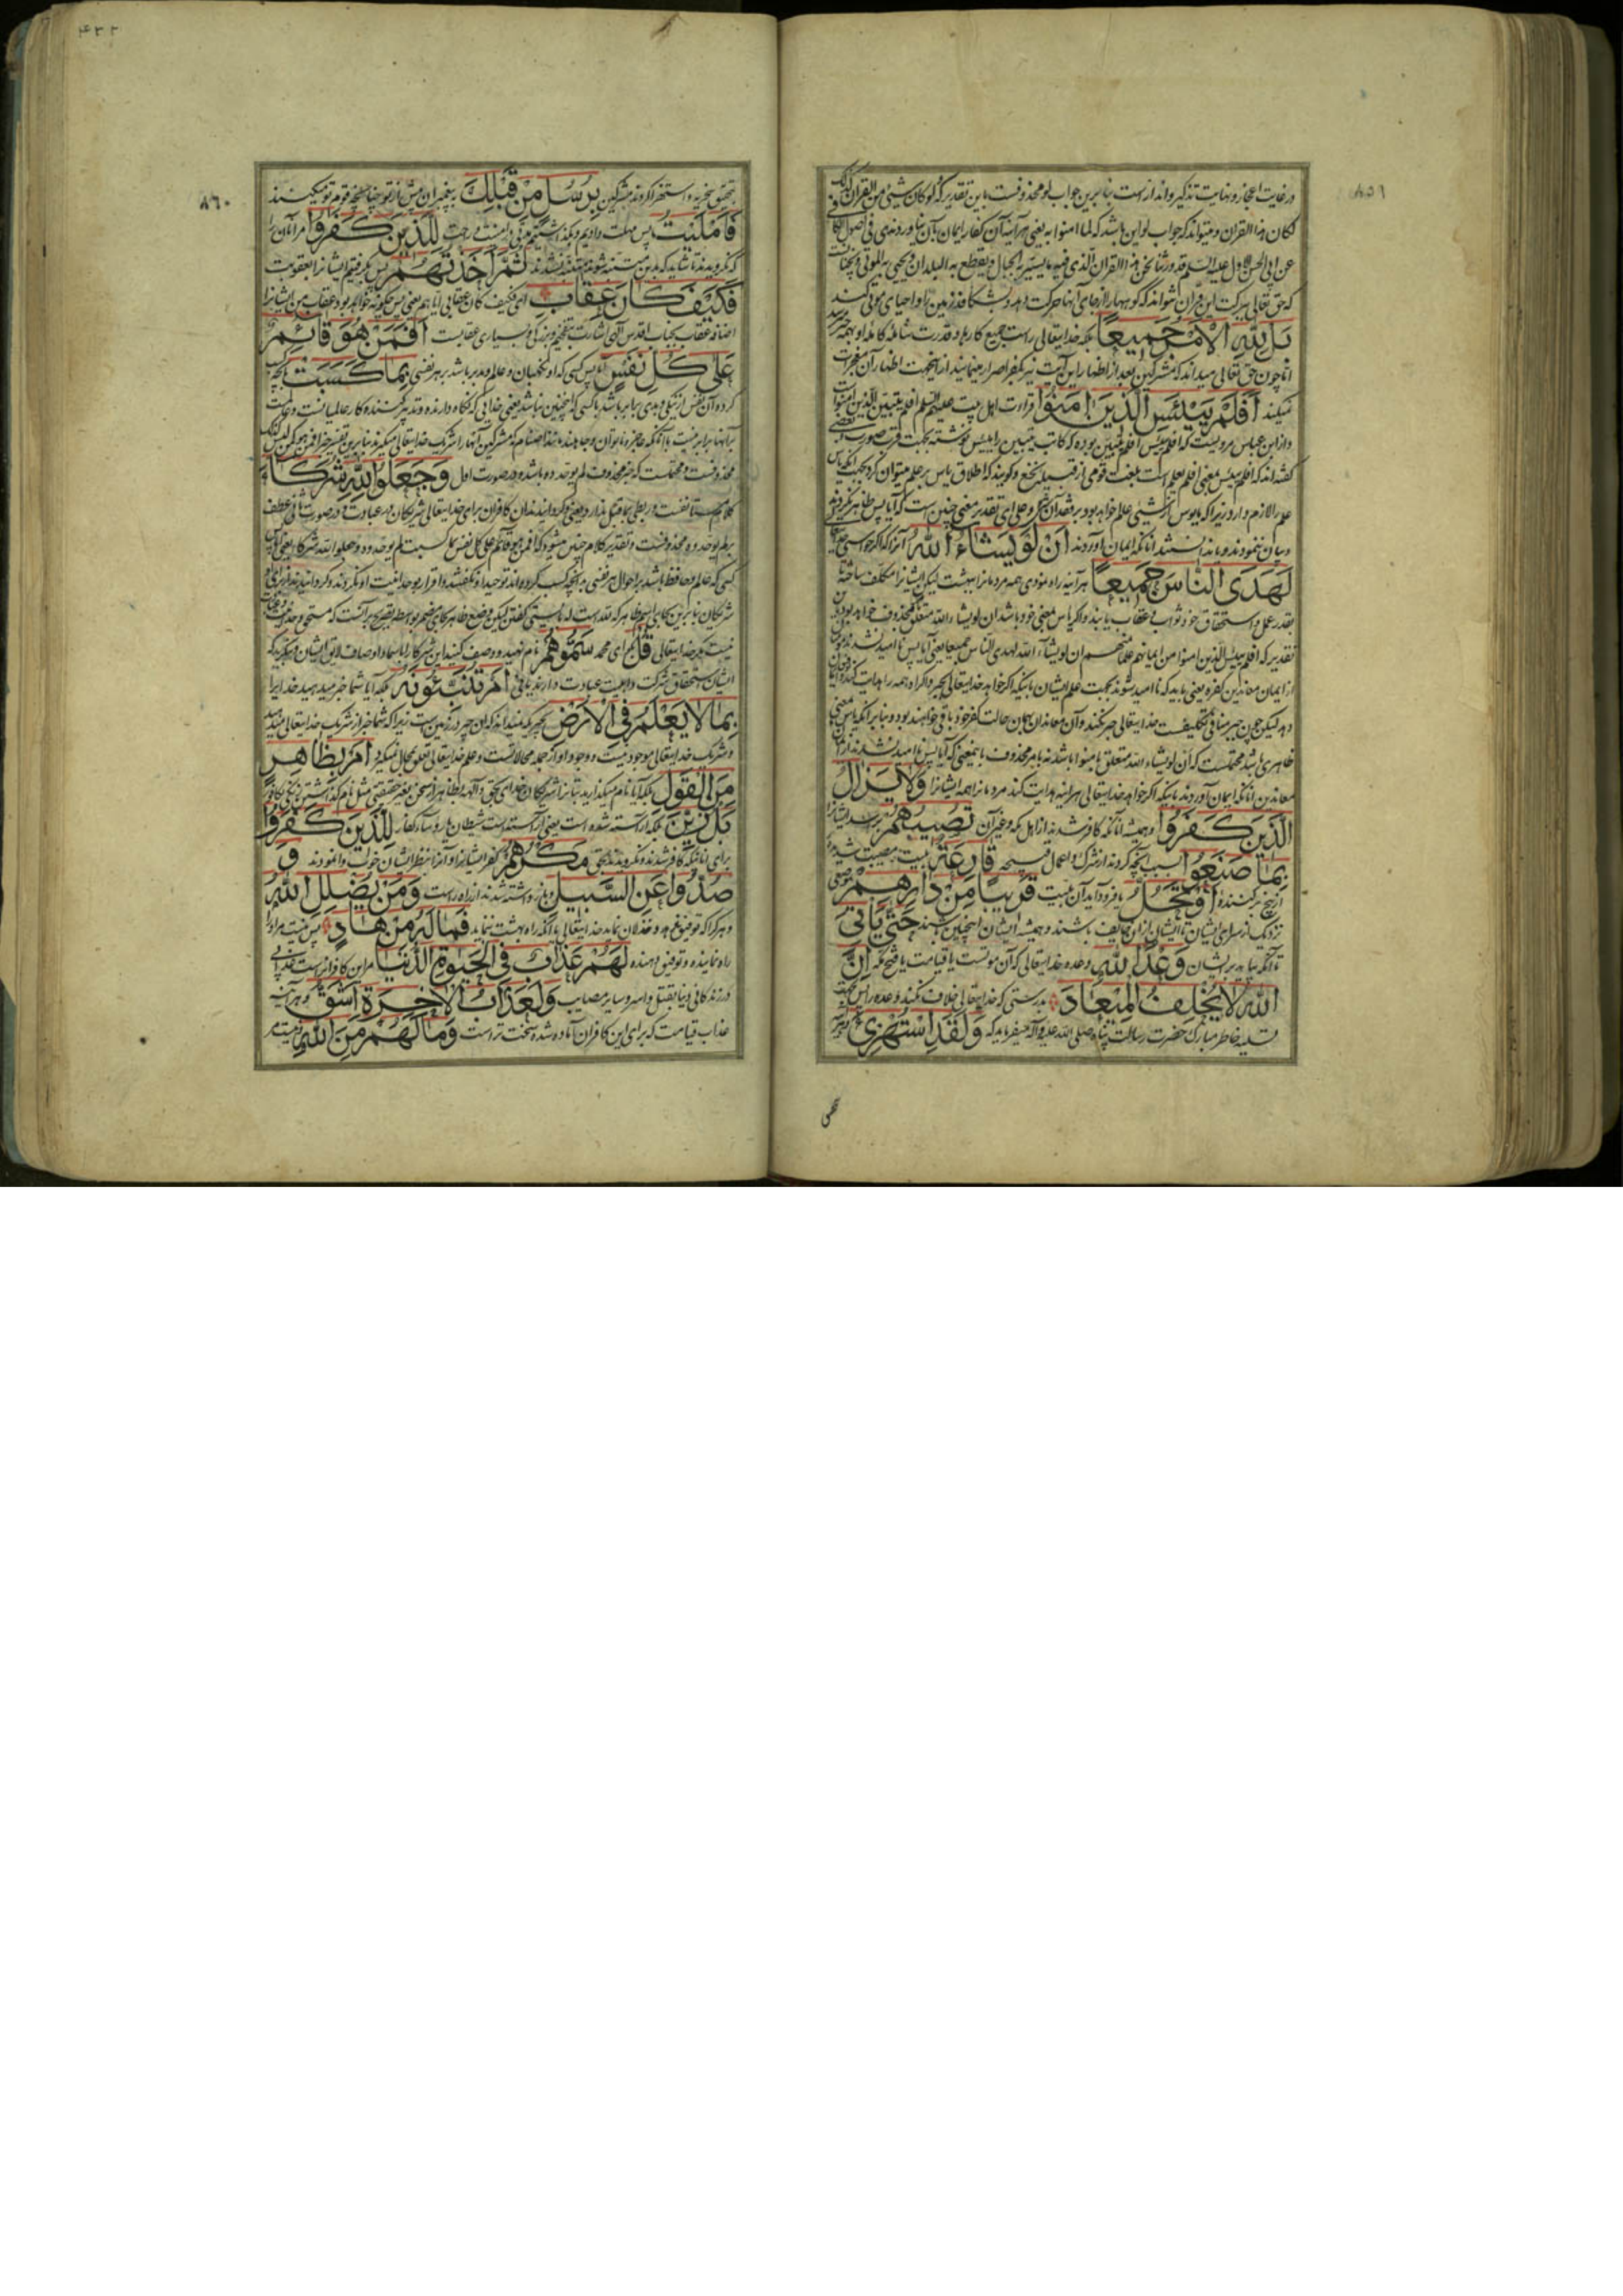 ۸۵۹
در غایت اعجاز و نهایت تذکیر و انذار است بنا برین جواب لو محذوفست باین تقدیر که لو کان شیئی من القران کذلک
لکان هذا القران و میتواند که جواب لو این باشد که لما امنوا به یعنی هر آینه آن کفار ایمان بآن نیاوردندی و فی اصول الکافی
عن ابی الحسن الاول علیه السلم قد ورثنا نحن هذا القران الذی فیه ما یسیر به الجبال و یقطع به البلدان و یحیی به الموتی
که حق تعالی ببرکت این قران کوهها را از جای آنها حرکت دهد و بشکافد زمین را و احیای موتی کند
بَل لِلّهِ الْاَمْرُ جَمیعًا بلکه خدایتعالی راست جمیع کارها و قدرت شامله کامله او بهمه
اما چون حق تعالی میداند که مشرکین بعد از اظهار این آیت نیز بکفر اصرار مینمایند از اینجهت اظهار آن معجزات
نمیکند اَفَلَمْ یَیْئَسِ الَّذینَ امَنُوا قراءت اهل بیت علیهم السلم افلم یتبین الذین امنوا است
و از ابن عباس مرویست که افلم ییئس افلم یتبین بوده که کاتب یتبین را ییئس نوشته بجهت قرب صورت و بعضی
گفته‌اند که افلم ییئس بمعنی افلم یعلم است بلغت قومی از قبیله نخع و گویند که اطلاق یاس بر علم میتوان کرد بجهت آنکه یاس
علم را لازم دارد زیرا که مایوس از شیئی عالم خواهد بود بر فقدان آن شیء و علی ای تقدیر معنی چنین است که آیا پس ظاهر نگردیده
و بیان ننمودند و یا ندانستند آنانکه ایمان آوردند اَنْ لَوْ یَشاءُ اللهُ آنرا که اگر خواستی خدایتعالی
لَهَدَی النّاسَ جَمیعًا هر آینه راه نمودی همه مردمانرا ببهشت لیکن ایشانرا مکلف ساخته تا
بقدر عمل و استحقاق خود ثواب و عقاب یابند و اگر یاس بمعنی خود باشد ان لو یشاء الله متعلق بمحذوف خواهد بود
تقدیر که افلم ییئس الذین امنوا من ایمانهم علما منهم ان لو یشاء الله لهدی الناس جمیعا یعنی آیا پس نا امید نشدند مؤمنان
از ایمان معاندین کفره یعنی باید که نا امید شوند بجهت علم ایشان باینکه اگر خواهد خدایتعالی بجبر و اکراه همه را هدایت کند
دهد لیکن چون جبر منافی تکلیفست خدایتعالی جبر نکند و آن معاندان بهمان حالت کفر خود باقی خواهند بود و بنا بر آنکه یاس بمعنی
ظاهری باشد محتملست که ان لو یشاء الله متعلق بامنوا باشد نه بامر محذوف باینمعنی که آیا پس نا امید نشدند از ایمان
معاندین آنانکه ایمان آوردند باینکه اگر خواهد خدایتعالی هر آینه هدایت کند مردمانرا همه ایشانرا وَلایَزالُ
الَّذینَ کَفَرُوا و همیشه آنانکه کافر شدند از اهل مکه و غیر آن تُصیبُهُمْ برسد ایشانرا
بِما صَنَعُوا بسبب آنچه کردند از شرک و اعمال قبیحه قارِعَةٌ بلیت و مصیبت شدید
از بیخ برکننده اَوْ تَحُلُّ یا فرود آید آن بلیت قَریبًا مِنْ دارِهِمْ بموضعی
نزدیک از سرای ایشان تا ایشان از آن خایف باشند و همیشه ایشان اینچنین باشند حَتّی یَأتِیَ
تا آنکه بیاید بر ایشان وَعْدُ اللهِ وعده خدایتعالی که آن موتست یا قیامت یا فتح مکه اِنَّ
اللهَ لایُخْلِفُ المیعادَ بدرستی که خدایتعالی خلاف نکند وعده را پس بجهت
تسلیه خاطر مبارک حضرت رسالت پناه صلی الله علیه و آله میفرماید که وَلَقَدِ اسْتُهْزِئَ و هر آینه
۴۳۳
۸۶۰
بتحقیق سخریه و استهزا کردند مشرکین بِرُسُلٍ مِنْ قَبْلِکَ به پیغمبران پیش از تو چنانچه قوم تو میکنند
فَاَمْلَیْتُ پس مهلت دادیم و بگذاشتیم مدتی در امنیت و راحت لِلَّذینَ کَفَرُوا مر آنان را
که نگرویدند تا شاید که بدین متنبه شوند و متنبه نشدند ثُمَّ اَخَذْتُهُمْ پس بگرفتم ایشانرا بعقوبت
فَکَیْفَ کانَ عِقابِ ای فکیف کان عقابی ایاهم یعنی پس چگونه خواهد بود عقاب من ایشانرا
اضافه عقاب بجناب اقدس الهی اشارتست بتفخیم و بزرگی و بسیاری عقابت اَفَمَنْ هُوَ قائِمٌ
عَلی کُلِّ نَفْسٍ آیا پس کسی که او نگهبان و عالم و مدبر باشد بر هر نفسی بِما کَسَبَتْ بآنچه کسب
کرده آن نفس از نیکی و بدی برابر باشد با کسی که اینچنین نباشد یعنی خدایی که نگاه دارنده و تدبیر کننده کار عالمیانست و عالمست
بر آنها برابر نیست با آنکه عاجز و ناتوان و جاهلند مانند اصنام که مشرکین آنها را شریک خدایتعالی میگویند بنا برین تفسیر خبر افمن هو کمن لیس کذلک
محذوفست و محتملست که خبر محذوف لم یوحدوه باشد و در صورت اول وَجَعَلُوا لِلّهِ شُرَکاءَ
کلام مستانفست و ربطی بما قبل ندارد یعنی و گردانیدند آن کافران برای خدایتعالی شریکان در عبادت و در صورت ثانی عطف
بر لم یوحدوه محذوفست و تقدیر کلام چنین میشود که افمن هو قائم علی کل نفس بما کسبت لم یوحدوه و جعلوا لله شرکاء یعنی آیا پس
کسی که عالم و حافظ باشد بر احوال هر نفسی بر آنچه کسب کرده‌اند توحید او نگفتند و اقرار بوحدانیت او نکردند و گردانیدند از برای او
شریکان بنا برین بجای اسم ظاهر که لله است له بایستی گفتن لیکن وضع ظاهر بجای مضمر بواسطه تصریح بر آنست که مستحق وحدانیت
نیست مگر خدایتعالی قُلْ بگو ای محمد سَمُّوهُمْ نام نهید و وصف کنید این شرکا را باسما و اوصاف لایق ایشان و بنگرید که
ایشان استحقاق شرکت و اهلیت عبادت دارند یا نی اَمْ تُنَبِّئُونَهُ بلکه آیا شما خبر میدهید خدایرا
بِما لایَعْلَمُ فِی الْاَرْضِ بچیزیکه نمیداند که آن چیز در زمین است زیرا که شما خبر از شریک خدایتعالی میدهید
و شریک خدایتعالی موجود نیست و وجود او از جمله محالاتست و علم خدایتعالی تعلق بمحال نمیگیرد اَمْ بِظاهِرٍ
مِنَ القَوْلِ بلکه آیا نام میگذارید بتانرا شریکان خدای بحق و آلهه بظاهر از سخن بغیر حقیقتی مثل نام گذاشتن زنگی بکافور
بَلْ زُیِّنَ بلکه آراسته شده است یعنی آراسته است شیطان یا رؤساء کفار لِلَّذینَ کَفَرُوا
برای آنانیکه کافر شدند و نگرویدند بحق مَکْرُهُمْ کفر ایشانرا و آنرا بنظر ایشان خوب وانمودند وَ
صُدُّوا عَنِ السَّبیلِ و باز داشته شدند از راه راست وَمَنْ یُضْلِلِ اللهُ
و هر کرا که توفیق ندهد و خذلان نماید خدایتعالی یا آنکه راه بهشت ننماید فَمالَهُ مِنْ هادٍ پس نیست مر او را
راه نماینده و توفیق دهنده لَهُمْ عَذابٌ فِی الْحَیوةِ الدُّنْیا مر این کافرانراست عذابی
در زندگانی دنیا بقتل و اسر و سایر مصایب وَلَعَذابُ الْاخِرَةِ اَشَقُّ و هر آینه
عذاب قیامت که برای این کافران آماده شده سخت‌تر است وَمالَهُمْ مِنَ اللهِ و نیست مر